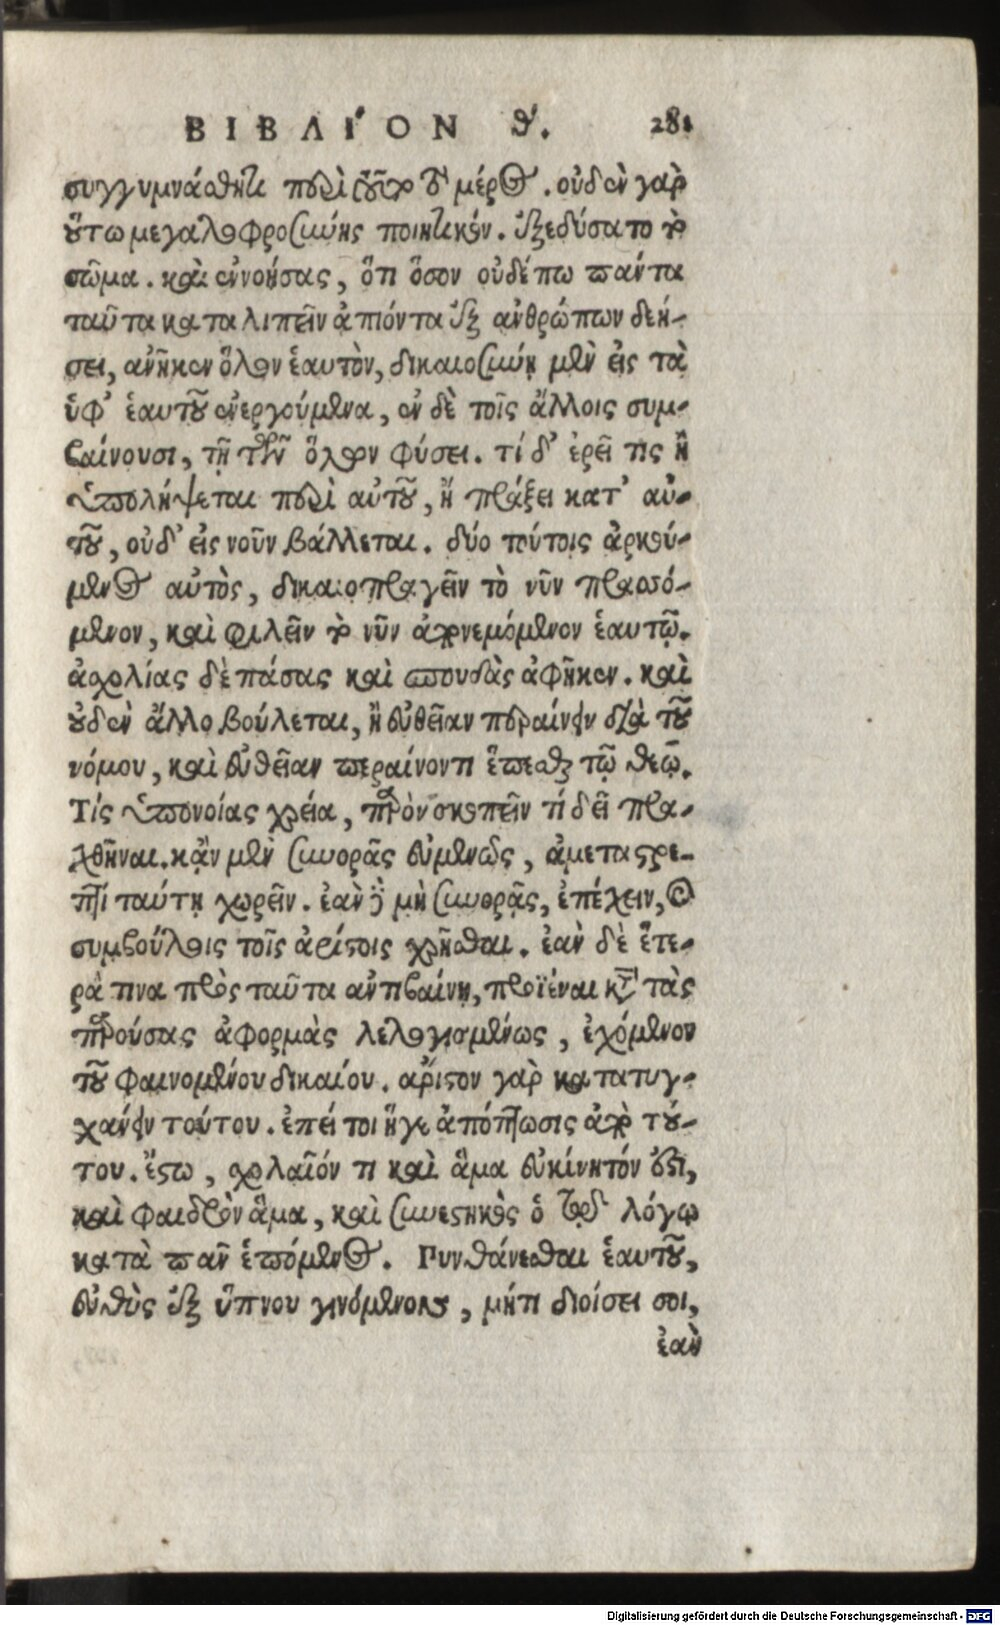 ΒΙΒΛΙ´ΟΝ θ´. 281
συγγυμνάσθητι περὶ τοῦτο τὸ μέρος. οὐδὲν γὰρ
οὕτω μεγαλοφροσύνης ποιητικόν. ἐξεδύσατο τὸ
σῶμα. καὶ ἐννοήσας, ὅτι ὅσον οὐδέπω πάντα
ταῦτα καταλιπεῖν ἀπιόντα ἐξ ἀνθρώπων δεή-
σει, ἀνῆκεν ὅλον ἑαυτὸν, δικαιοσύνῃ μὲν εἰς τὰ
ὑφ’ ἑαυτοῦ ἐνεργούμενα, ἐν δὲ τοῖς ἄλλοις συμ-
βαίνουσι, τῇ τῶν ὅλων φύσει. τί δ’ ἐρεῖ τις ἢ
ὑπολήψεται περὶ αὐτοῦ, ἢ πράξει κατ’ αὐ-
τοῦ, οὐδ’ εἰς νοῦν βάλλεται. δύο τούτοις ἀρκού-
μενος αὐτὸς, δικαιοπραγεῖν τὸ νῦν πρασσό-
μενον, καὶ φιλεῖν τὸ νῦν ἀπονεμόμενον ἑαυτῷ.
ἀσχολίας δὲ πάσας καὶ σπουδὰς ἀφῆκεν. καὶ
οὐδὲν ἄλλο βούλεται, ἢ εὐθεῖαν περαίνειν διὰ τοῦ
νόμου, καὶ εὐθεῖαν περαίνοντι ἕπεσθαι τῷ θεῷ.
Τίς ὑπονοίας χρεία, παρὸν σκοπεῖν τί δεῖ πρα-
χθῆναι. κἂν μὲν συνορᾷς εὐμενῶς, ἀμεταστρε-
πτὶ ταύτῃ χωρεῖν. ἐὰν δὲ μὴ συνορᾷς, ἐπέχειν, καὶ
συμβούλοις τοῖς ἀρίστοις χρῆσθαι. ἐὰν δὲ ἕτε-
ρά τινα πρὸς ταῦτα ἀντιβαίνῃ, προϊέναι κατὰ τὰς
παρούσας ἀφορμὰς λελογισμένως, ἐχόμενον
τοῦ φαινομένου δικαίου. ἄριστον γὰρ κατατυγ-
χάνειν τούτου. ἐπεί τοι ἥγε ἀπόπτωσις ἀπὸ τού-
του. ἔστω, σχολαῖόν τι καὶ ἅμα εὐκίνητόν ἐστι,
καὶ φαιδρὸν ἅμα, καὶ συνεστηκὸς ὁ τῷ λόγῳ
κατὰ πᾶν ἑπόμενος. Πυνθάνεσθαι ἑαυτοῦ,
εὐθὺς ἐξ ὕπνου γινόμενον, μήτι διοίσει σοι,
ἐὰν
Digitalisierung gefördert durch die Deutsche Forschungsgemeinschaft - DFG